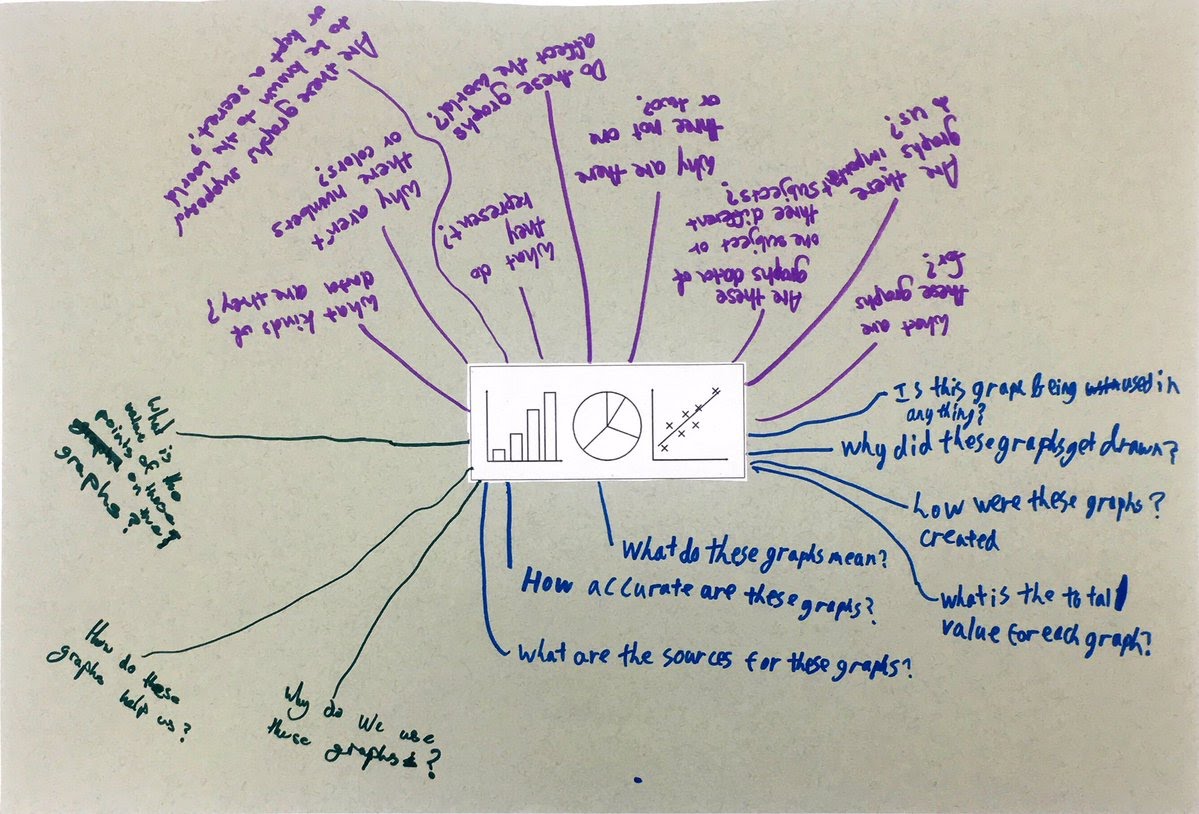 Are these graphs supposed
to be known to the world
or kept a secret?
Do these graphs
affect the world?
Why are there
three not one
or two?
Are these
graphs important
to us?
Why aren't
there numbers
or colors?
What do
they
represent?
Are these
graphs data of
one subject or
three different
subjects?
What are
these graphs
for?
What kinds of
data are they?
Is this graph being used in
anything?
Why did these graphs get drawn?
How were these graphs?
created
What is the total
value for each graph?
What do these graphs mean?
How accurate are these graphs?
What are the sources for these graphs?
What is the
value of the
points
on these
graphs?
How do these
graphs help us?
Why do We use
these graphs?